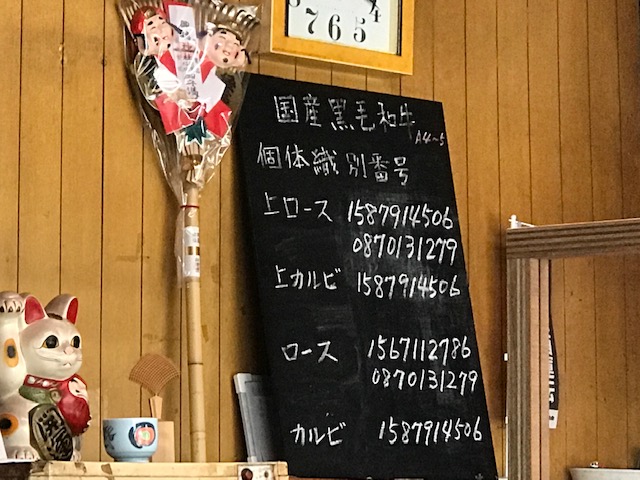 4
7 6 5
国産黒毛和牛
A4~5
個体織別番号
上ロース 1587914506
0870131279
上カルビ 1587914506
ロース 1567112786
0870131279
カルビ 1587914506